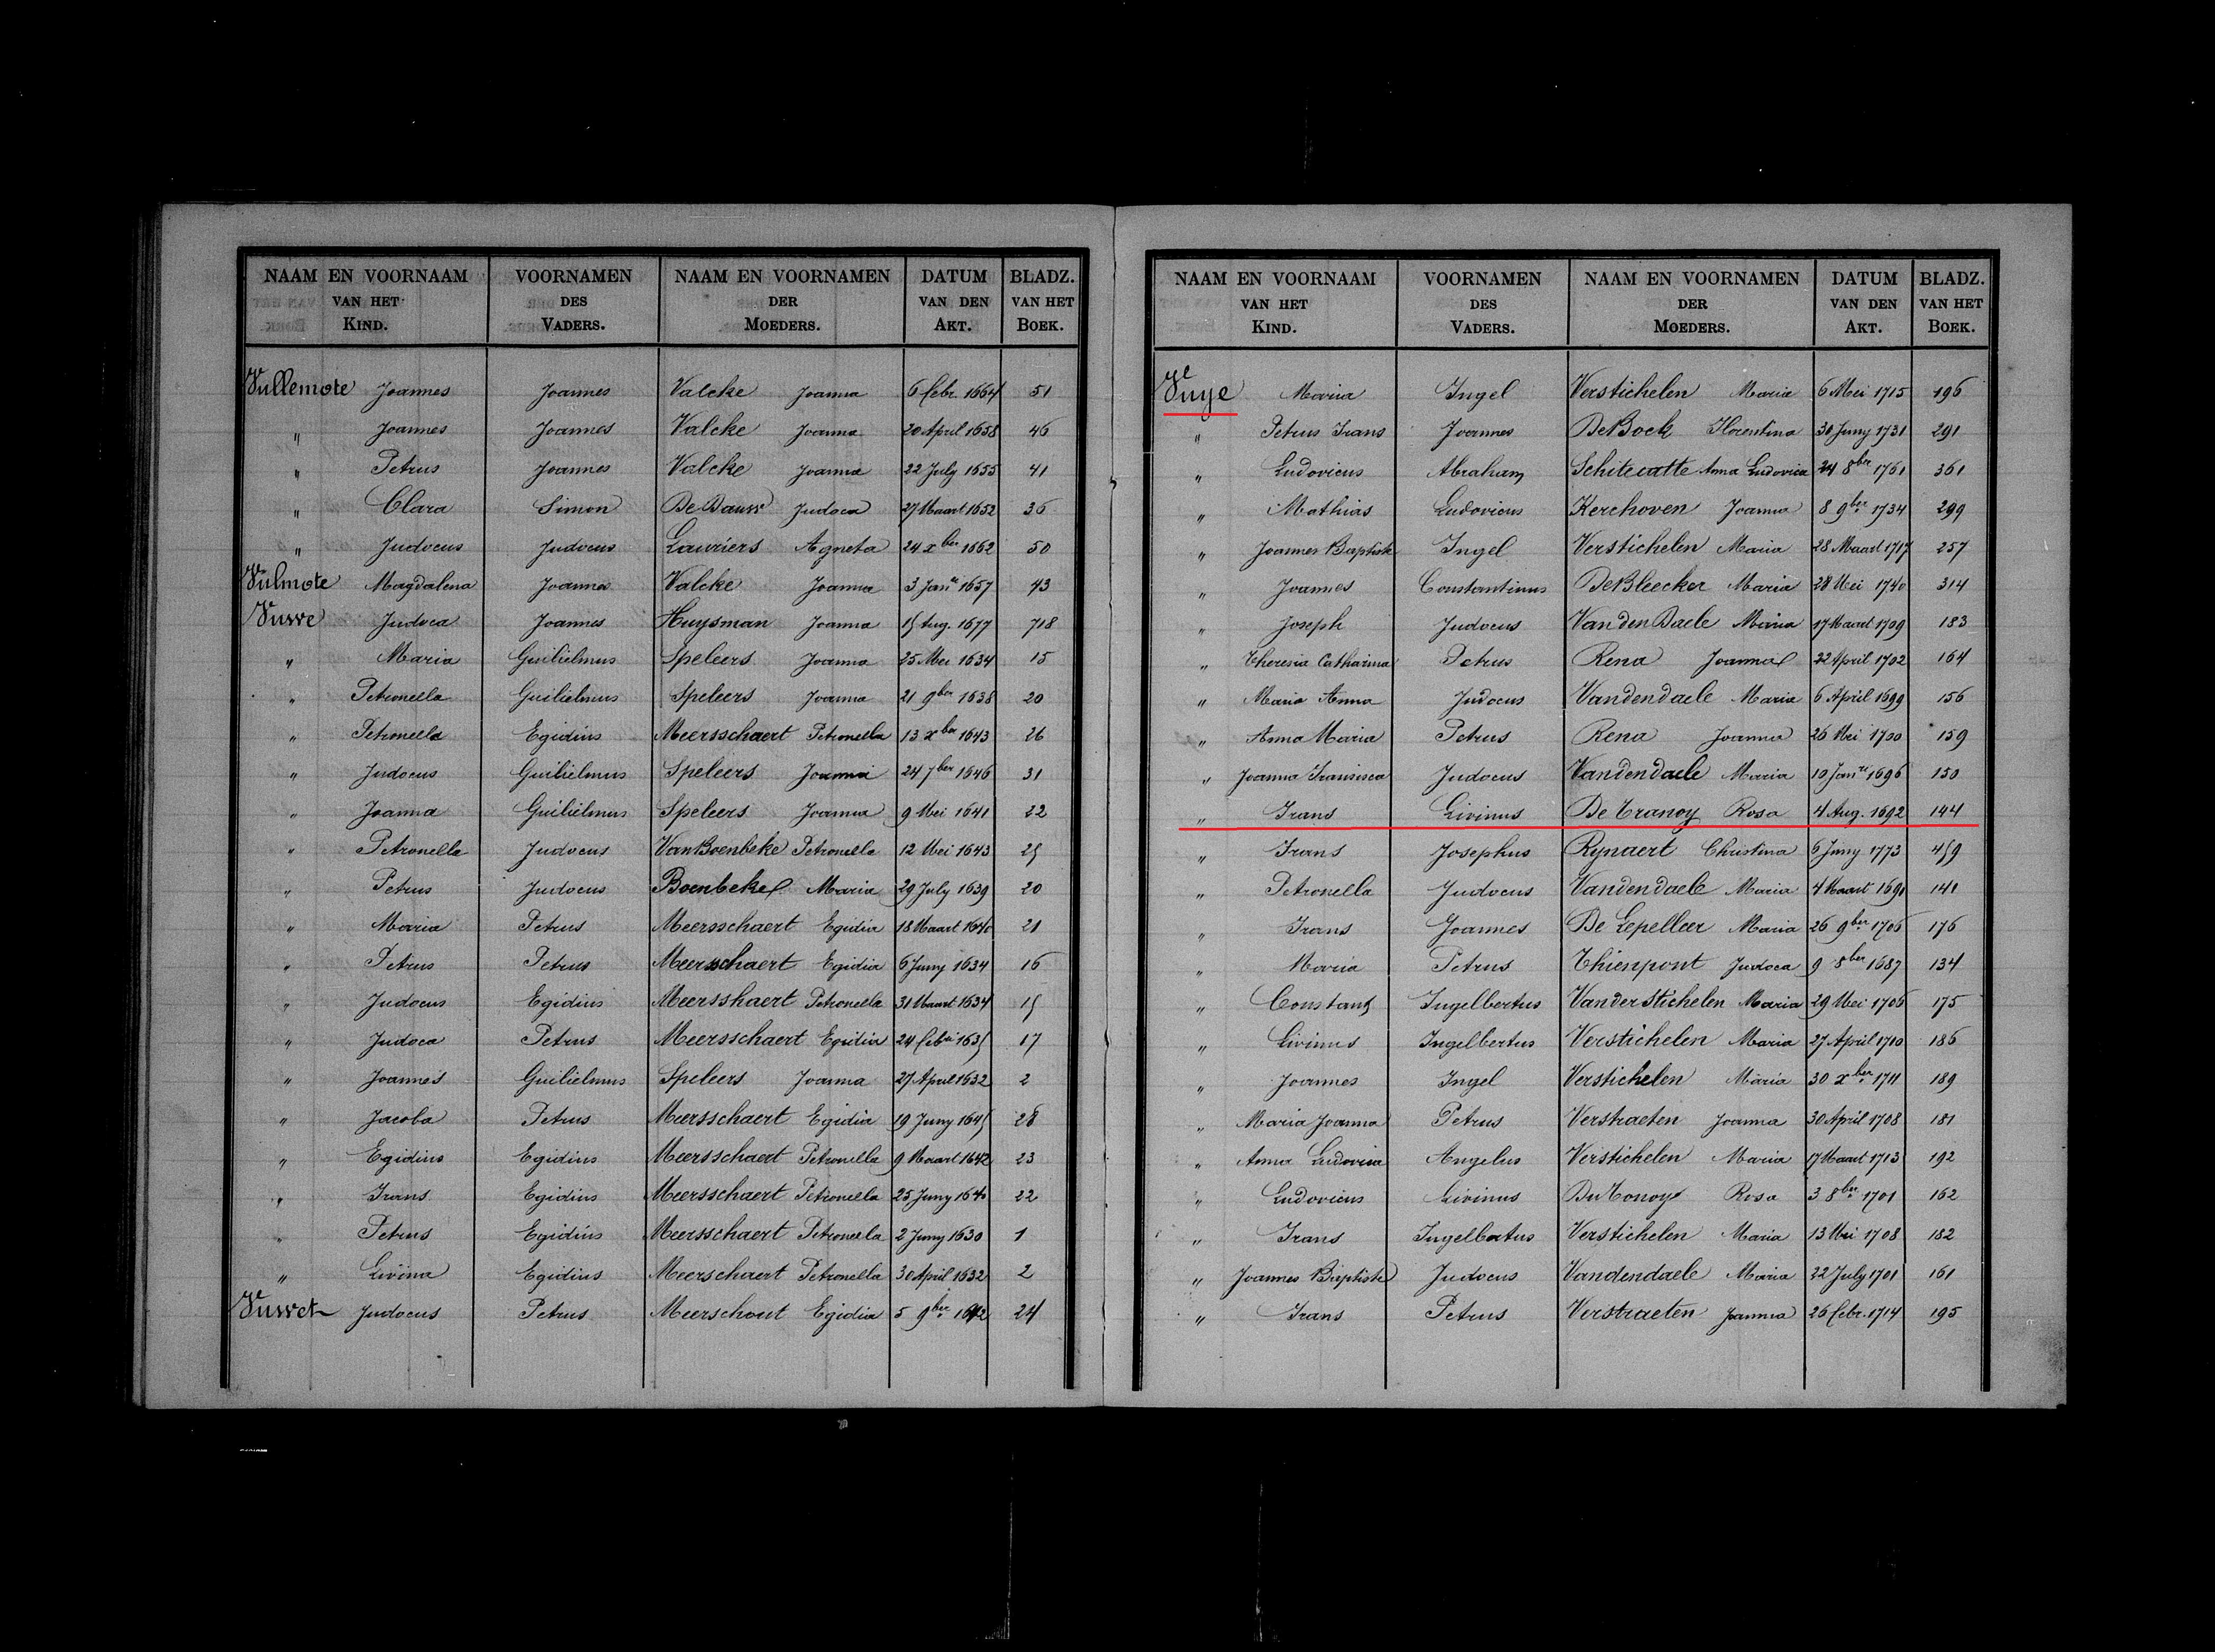 NAAM EN VOORNAAM VAN HET KIND. VOORNAMEN DES VADERS. NAAM EN VOORNAMEN DER MOEDERS. DATUM VAN DEN AKT. BLADZ. VAN HET BOEK.
Vullemote Joannes Joannes Valcke Joanna 6 febr. 1664 51
" Joannes Joannes Valcke Joanna 20 April 1658 46
" Petrus Joannes Valcke Joanna 22 July 1655 41
" Clara Simon De Dauw Judoca 27 Maart 1652 36
" Judocus Judocus Lauriers Agneta 24 xber 1662 50
Vulmote Magdalena Joanna Valcke Joanna 3 Janr 1657 43
Vuwe Judoca Joannes Huysman Joanna 15 Aug. 1677 718
" Maria Guilielmus Speleers Joanna 25 Mei 1634 15
" Petronella Guilielmus Speleers Joanna 21 9ber 1638 20
" Petronella Egidius Meersschaert Petronella 13 xber 1643 26
" Judocus Guilielmus Speleers Joanna 24 7ber 1646 31
" Joanna Guilielmus Speleers Joanna 9 Mei 1641 22
" Petronella Judocus Van Boenbeke Petronella 12 Mei 1643 25
" Petrus Judocus Boenbeke Maria 29 July 1639 20
" Maria Petrus Meersschaert Egidia 18 Maart 1640 21
" Petrus Petrus Meersschaert Egidia 6 Juny 1634 16
" Judocus Egidius Meersshaert Petronella 31 Maart 1634 15
" Judoca Petrus Meersschaert Egidia 24 1635 17
" Joannes Guilielmus Speleers Joanna 27 April 1632 2
" Jacoba Petrus Meersschaert Egidia 19 Juny 1645 28
" Egidius Egidius Meersschaert Petronella 9 Maart 1642 23
" Frans Egidius Meersschaert Petronella 25 Juny 1640 22
" Petrus Egidius Meersschaert Petronella 2 Juny 1630 1
" Livina Egidius Meerschaert Petronella 30 April 1632 2
Vuwet Judocus Petrus Meerschout Egidia 5 9ber 1642 24
NAAM EN VOORNAAM VAN HET KIND. VOORNAMEN DES VADERS. NAAM EN VOORNAMEN DER MOEDERS. DATUM VAN DEN AKT. BLADZ. VAN HET BOEK.
Vuye Maria Ingel Verstichelen Maria 6 Mei 1715 196
" Petrus Frans Joannes De Bock Florentina 30 Juny 1731 291
" Ludovicus Abraham Schitecatte Anna Ludovica 24 8ber 1761 361
" Mathias Ludovicus Kerchoven Joanna 8 9ber 1734 299
" Joannes Baptiste Ingel Verstichelen Maria 28 Maart 1717 257
" Joannes Constantinus De Bleecker Maria 28 Mei 1740 314
" Joseph Judocus Van den Daele Maria 17 Maart 1709 183
" Theresia Catharina Petrus Rena Joanna 22 April 1702 164
" Maria Anna Judocus Vandendaele Maria 6 April 1699 156
" Anna Maria Petrus Rena Joanna 26 Mei 1700 159
" Joanna Fransisca Judocus Vandendaele Maria 10 Janri 1696 150
" Frans Livinus De Tranoy Rosa 4 Aug. 1692 144
" Frans Josephus Rynaert Christina 6 Juny 1773 459
" Petronella Judocus Vandendaele Maria 4 Maart 1691 141
" Frans Joannes De Lepelleer Maria 26 9ber 1706 176
" Maria Petrus Thienpont Judoca 9 8ber 1687 134
" Constans Ingelbertus Vanderstichelen Maria 29 Mei 1706 175
" Livinus Ingelbertus Verstichelen Maria 27 April 1710 186
" Joannes Ingel Verstichelen Maria 30 xber 1711 189
" Maria Joanna Petrus Verstraeten Joanna 30 April 1708 181
" Anna Ludovica Angelus Verstichelen Maria 17 Maart 1713 192
" Ludovicus Livinus Rosa 3 8ber 1701 162
" Frans Ingelbertus Verstichelen Maria 13 Mei 1708 182
" Joannes Baptiste Judocus Vandendaele Maria 22 July 1701 161
" Frans Petrus Verstraeten Joanna 26 febr. 1714 195